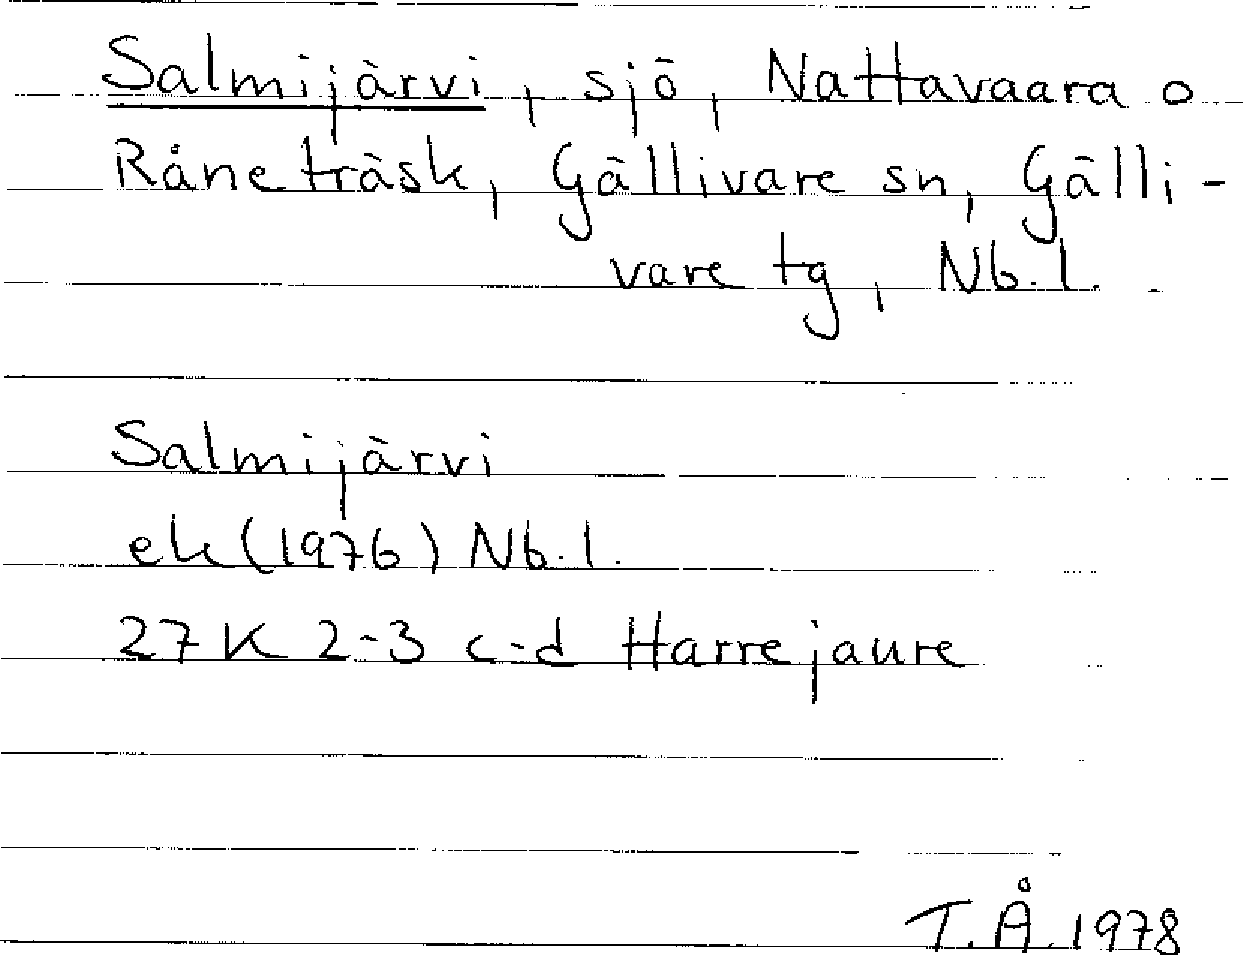 Salmijärvi, sjö, Nattavaara o
Råneträsk, Gällivare sn, Gälli-
vare tg, Nb. l.
Salmijärvi
ek (1976) Nb. l.
27 K 2-3 c-d Harrejaure
T.Å. 1978